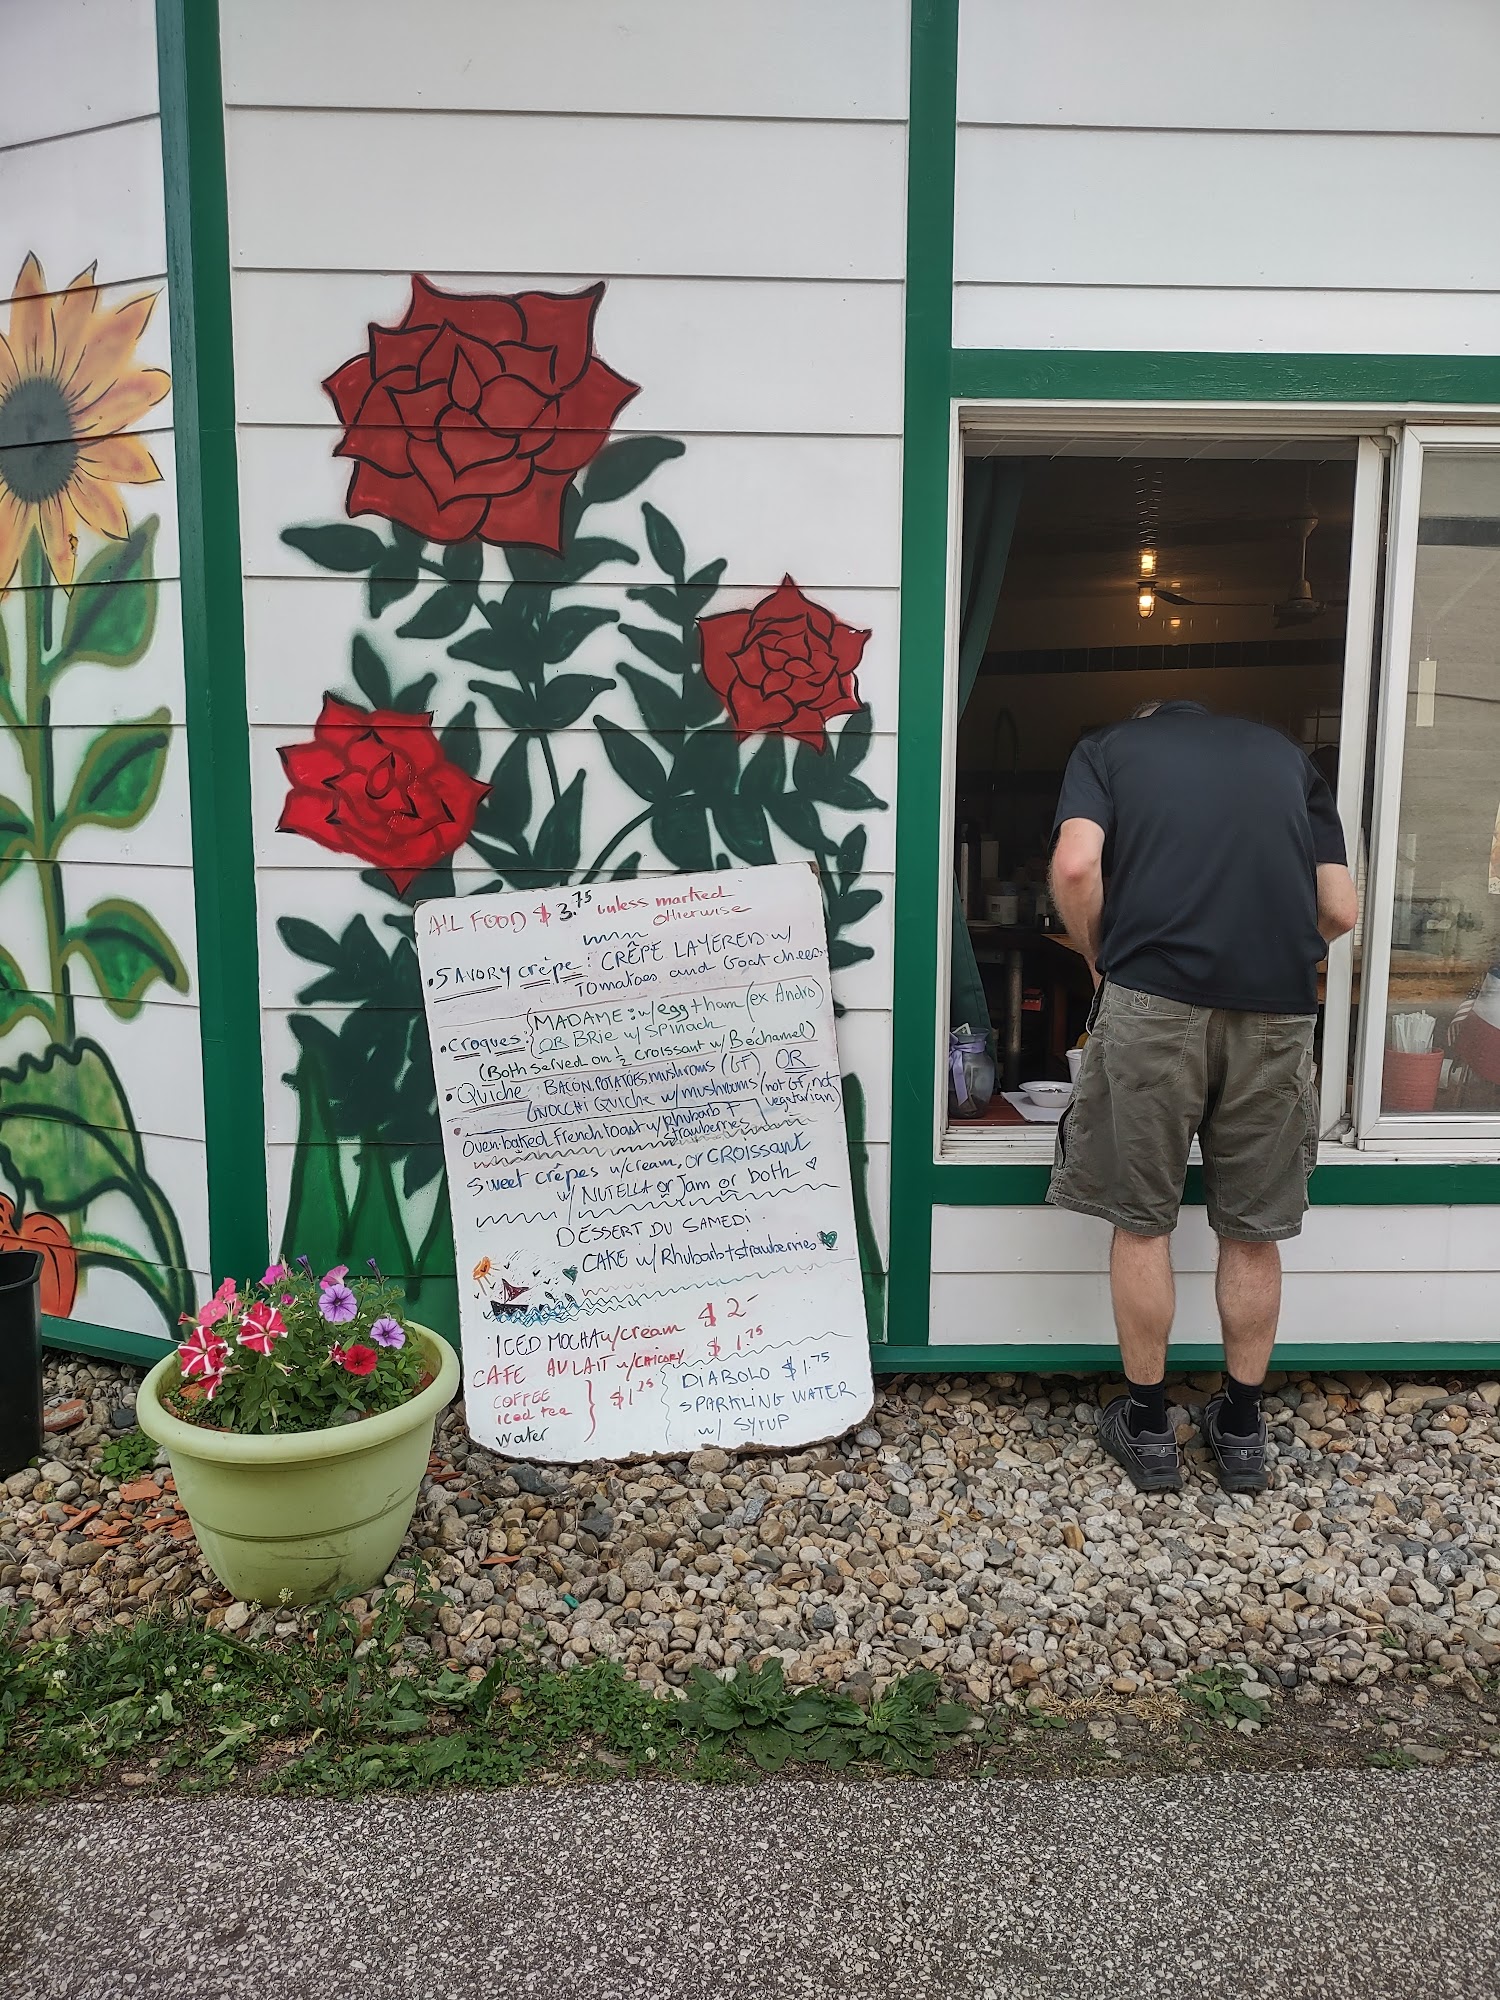 ALL FOOD $3.75 unless marked
otherwise
• SAVORY crêpe: CRÊPE LAYERED w/
Tomatoes and Goat cheese.
• croques: (MADAME: w/ egg + ham (ex Andro)
OR BRIE w/ SPINach
(Both Served on ½ croissant w/ Béchamel)
• Quiche: BACON, POTATOES, mushroms (GF) OR
GNOCCHi QUiche w/ mushrooms (not GF, not
vegetarian)
• Oven-baked french toast w/ Rhubarb +
strawberries
Sweet crêpes w/cream, or CROISSANT
w/ NUTELLA or Jam or both ♡
DESSERT DU SAMEDi
CAKE w/ Rhubarb + strawberries
ICED MOCHA w/ cream $2-
CAFE AU LAIT w/ CHICORY $1.75
COFFEE
Iced tea } $1.25
Water
DIABOLO $1.75
SPARKLING WATER
w/ SYRUP